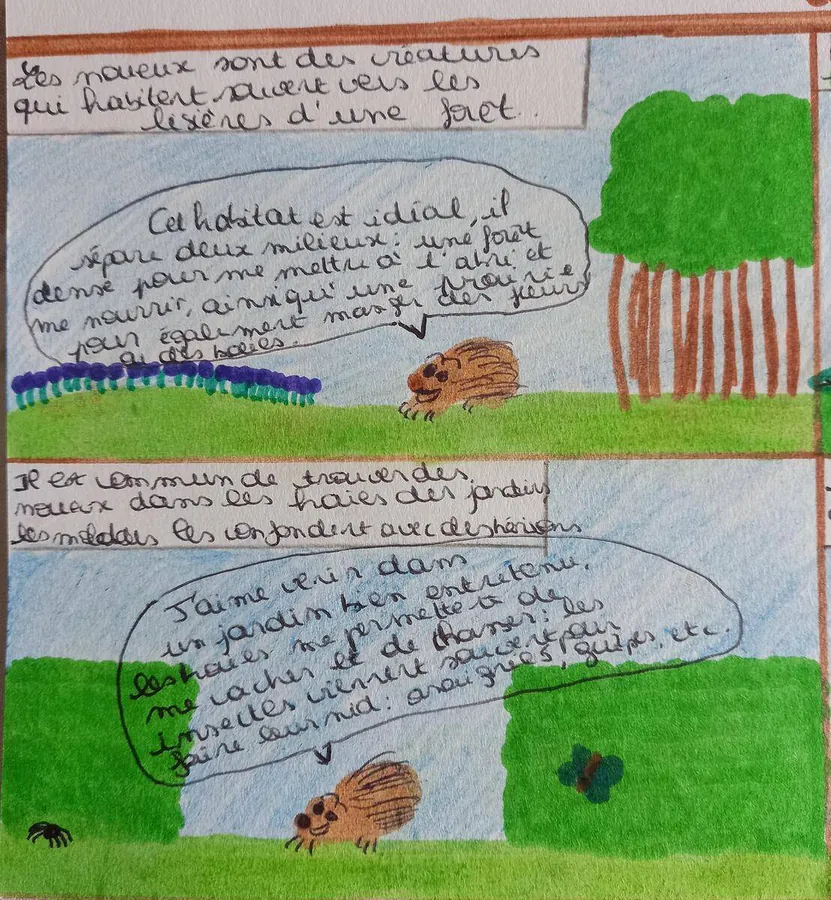 Les noueux sont des créatures
qui habitent souvent vers les
lisières d'une forêt.
Cet habitat est idéal, il
sépare deux milieux: une forêt
dense pour me mettre à l'abri et
me nourrir, ainsi qu'une prairie
pour également manger des fleurs
ou des baies.
Il est commun de trouver des
noueux dans les haies des jardins
les moldus les confondent avec des hérissons
J'aime venir dans
un jardin bien entretenu,
les haies me permette de
me cacher et de chasser: les
insectes viennent souvent pour
faire leur nid: araignées, guêpes, etc.